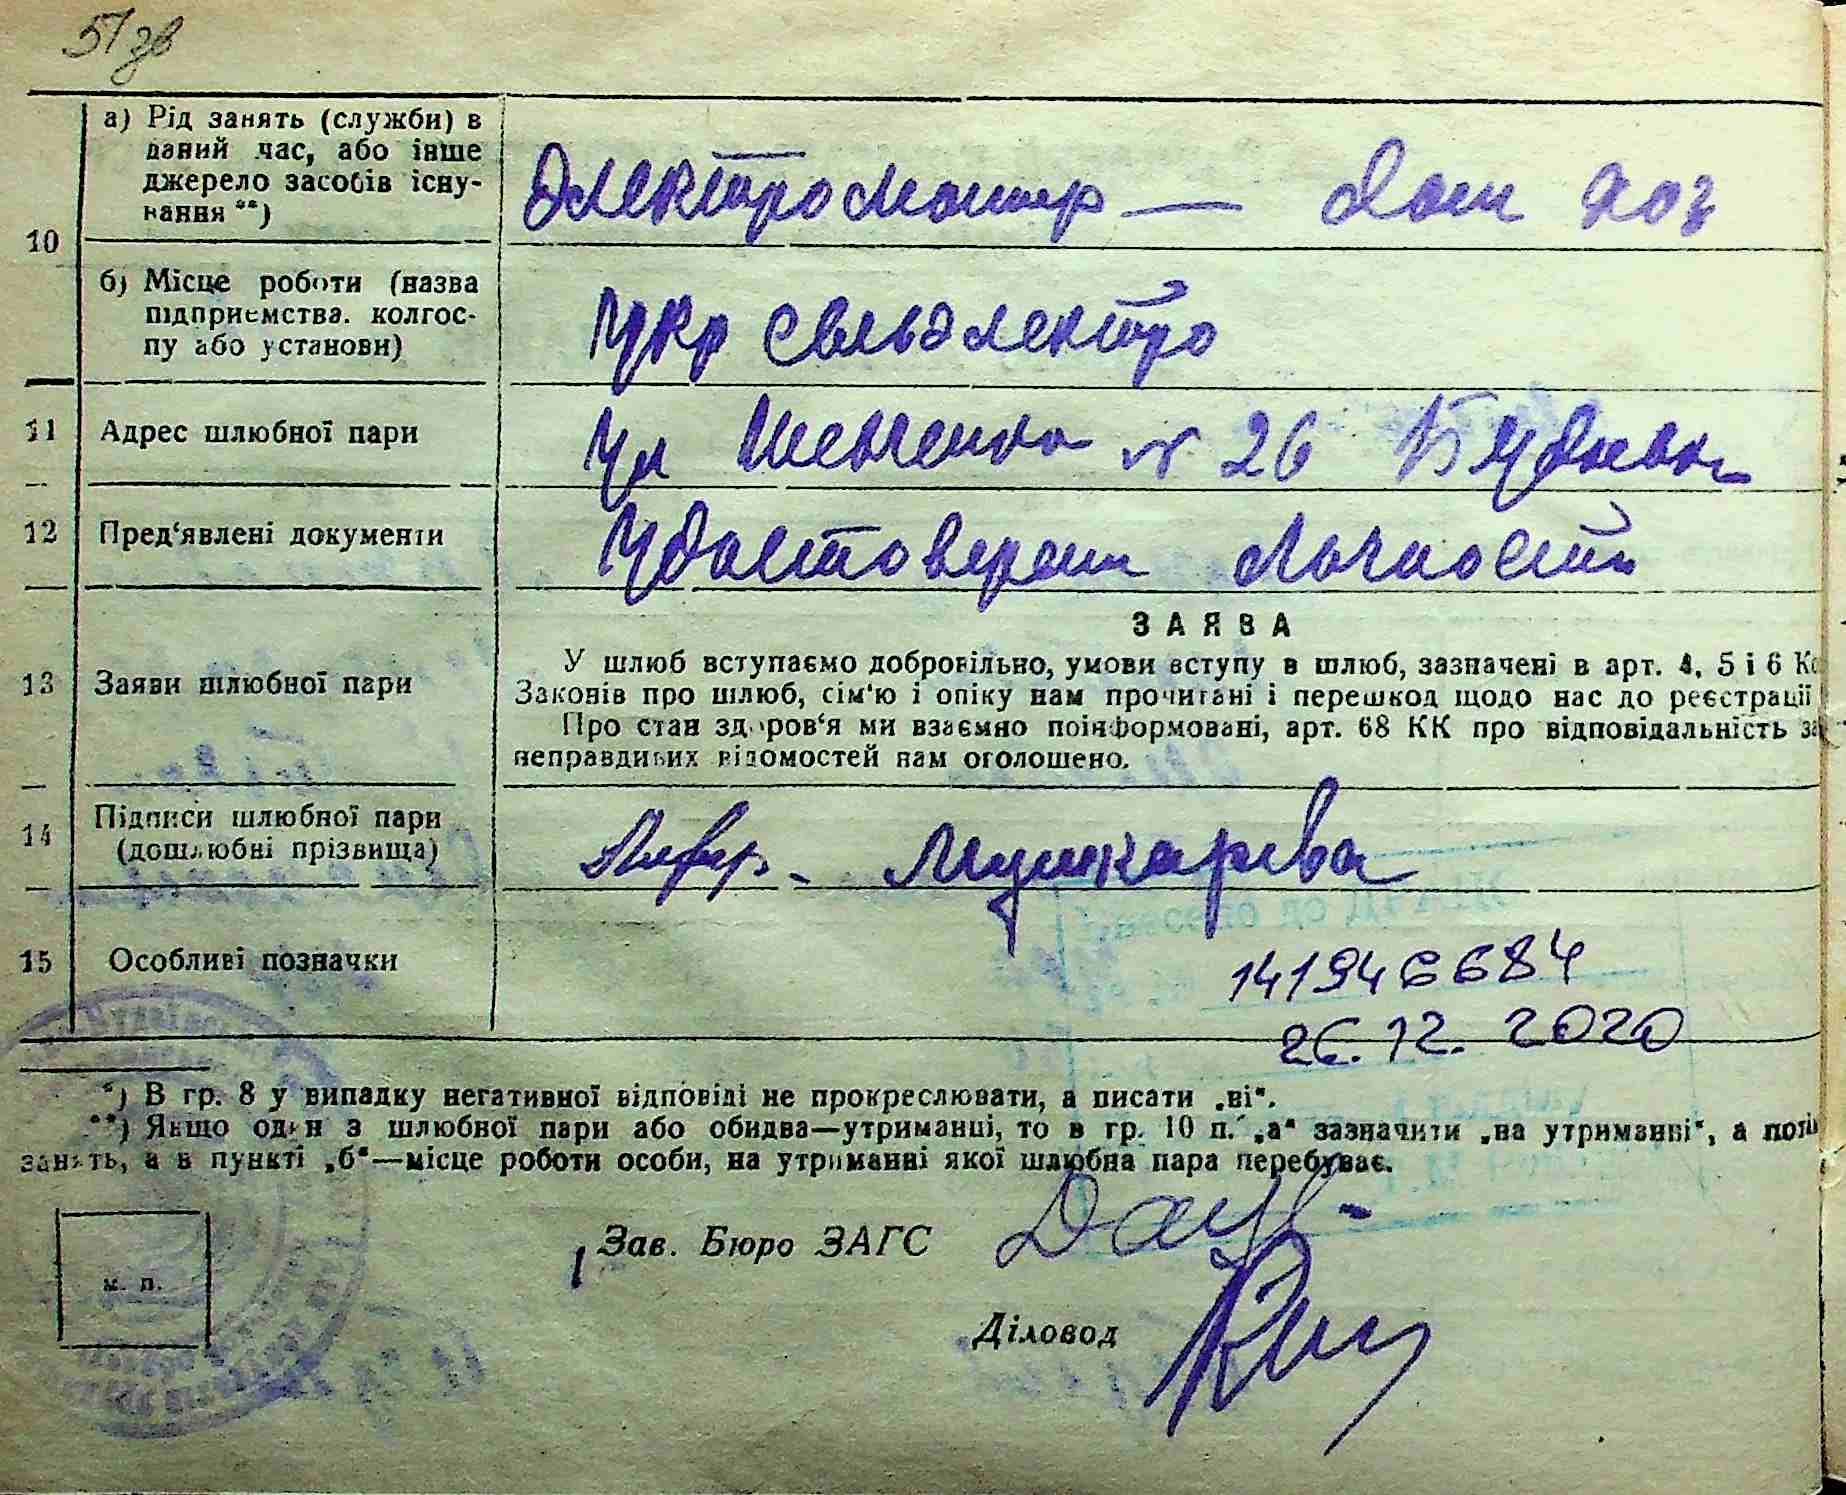 51 зв
а) Рід занять (служби) в
даний час, або інше
джерело засобів існу-
вання **)
Электромонтер — Дом хоз
10
б) Місце роботи (назва
підприємства, колгос-
пу або установи)
Укрсельэлектро
11 Адрес шлюбної пари
Ул Шевченка № 26
12 Пред‘явлені документи
Удостоверени Личности
ЗАЯВА
13 Заяви шлюбної пари
У шлюб вступаємо добровільно, умови вступу в шлюб, зазначені в арт. 4, 5 і 6
Законів про шлюб, сім‘ю і опіку нам прочитані і перешкод щодо нас до реєстрації
Про стан здоров‘я ми взаємно поінформовані, арт. 68 КК про відповідальність
неправдивих відомостей нам оголошено.
14 Підписи шлюбної пари
(дошлюбні прізвища)
15 Особливі позначки
141946684
26.12.2020
*) В гр. 8 у випадку негативної відповіді не прокреслювати, а писати „ні“.
**) Якщо один з шлюбної пари або обидва—утриманці, то в гр. 10 п. „а“ зазначити „на утриманні“, а
занять, а в пункті „б“—місце роботи особи, на утриманні якої шлюбна пара перебуває.
Зав. Бюро ЗАГС
м. п.
Діловод